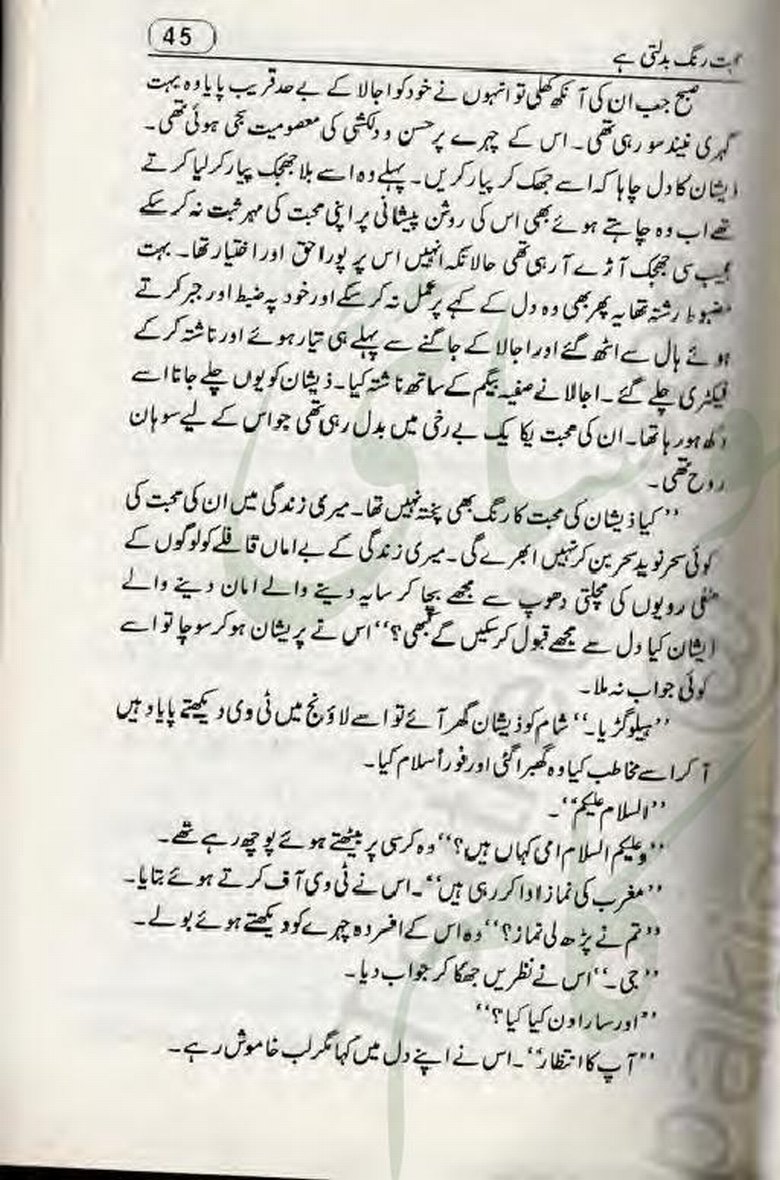 45
محبت رنگ بدلتی ہے
صبح جب ان کی آنکھ کھلی تو انہوں نے خود کو اجالا کے بے حد قریب پایا وہ بہت
گہری نیند سو رہی تھی۔ اس کے چہرے پر حسن و دلکشی کی معصومیت سجی ہوئی تھی۔
ذیشان کا دل چاہا کہ اسے جھک کر پیار کریں۔ پہلے وہ اسے بلا جھجک پیار کر لیا کرتے
تھے اب وہ چاہتے ہوئے بھی اس کی روشن پیشانی پر اپنی محبت کی مہر ثبت نہ کر سکے
عجیب سی جھجک آڑے آ رہی تھی حالانکہ انہیں اس پر پورا حق اور اختیار تھا۔ بہت
مضبوط رشتہ تھا یہ پھر بھی وہ دل کے کہے پر عمل نہ کر سکے اور خود پہ ضبط اور جبر کرتے
ہوئے ہال سے اٹھ گئے اور اجالا کے جاگنے سے پہلے ہی تیار ہوئے اور ناشتہ کر کے
فیکٹری چلے گئے۔ اجالا نے صفیہ بیگم کے ساتھ ناشتہ کیا۔ ذیشان کو یوں چلے جانا اسے
دکھ ہو رہا تھا۔ ان کی محبت یکا یک بے رخی میں بدل رہی تھی جو اس کے لیے سوہان
روح تھی۔
”کیا ذیشان کی محبت کا رنگ بھی پختہ نہیں تھا۔ میری زندگی میں ان کی محبت کی
کوئی سحر نوید سحر بن کر نہیں ابھرے گی۔ میری زندگی کے بے اماں قافلے کو لوگوں کے
منفی رویوں کی مچلتی دھوپ سے مجھے بچا کر سایہ دینے والے امان دینے والے
ذیشان کیا دل سے مجھے قبول کر سکیں گے کبھی؟“ اس نے پریشان ہو کر سوچا تو اسے
کوئی جواب نہ ملا۔
”ہیلو گڑیا۔“ شام کو ذیشان گھر آئے تو اسے لاؤنج میں ٹی وی دیکھتے پایا وہیں
آ کر اسے مخاطب کیا وہ گھبرا گئی اور فوراً سلام کیا۔
”السلام علیکم“۔
”وعلیکم السلام امی کہاں ہیں؟“ وہ کرسی پر بیٹھتے ہوئے پوچھ رہے تھے۔
”مغرب کی نماز ادا کر رہی ہیں“۔ اس نے ٹی وی آف کرتے ہوئے بتایا۔
”تم نے پڑھ لی نماز؟“ وہ اس کے افسردہ چہرے کو دیکھتے ہوئے بولے۔
”جی۔“ اس نے نظریں جھکا کر جواب دیا۔
”اور سارا دن کیا کیا؟“
”آپ کا انتظار“۔ اس نے اپنے دل میں کہا مگر لب خاموش رہے۔